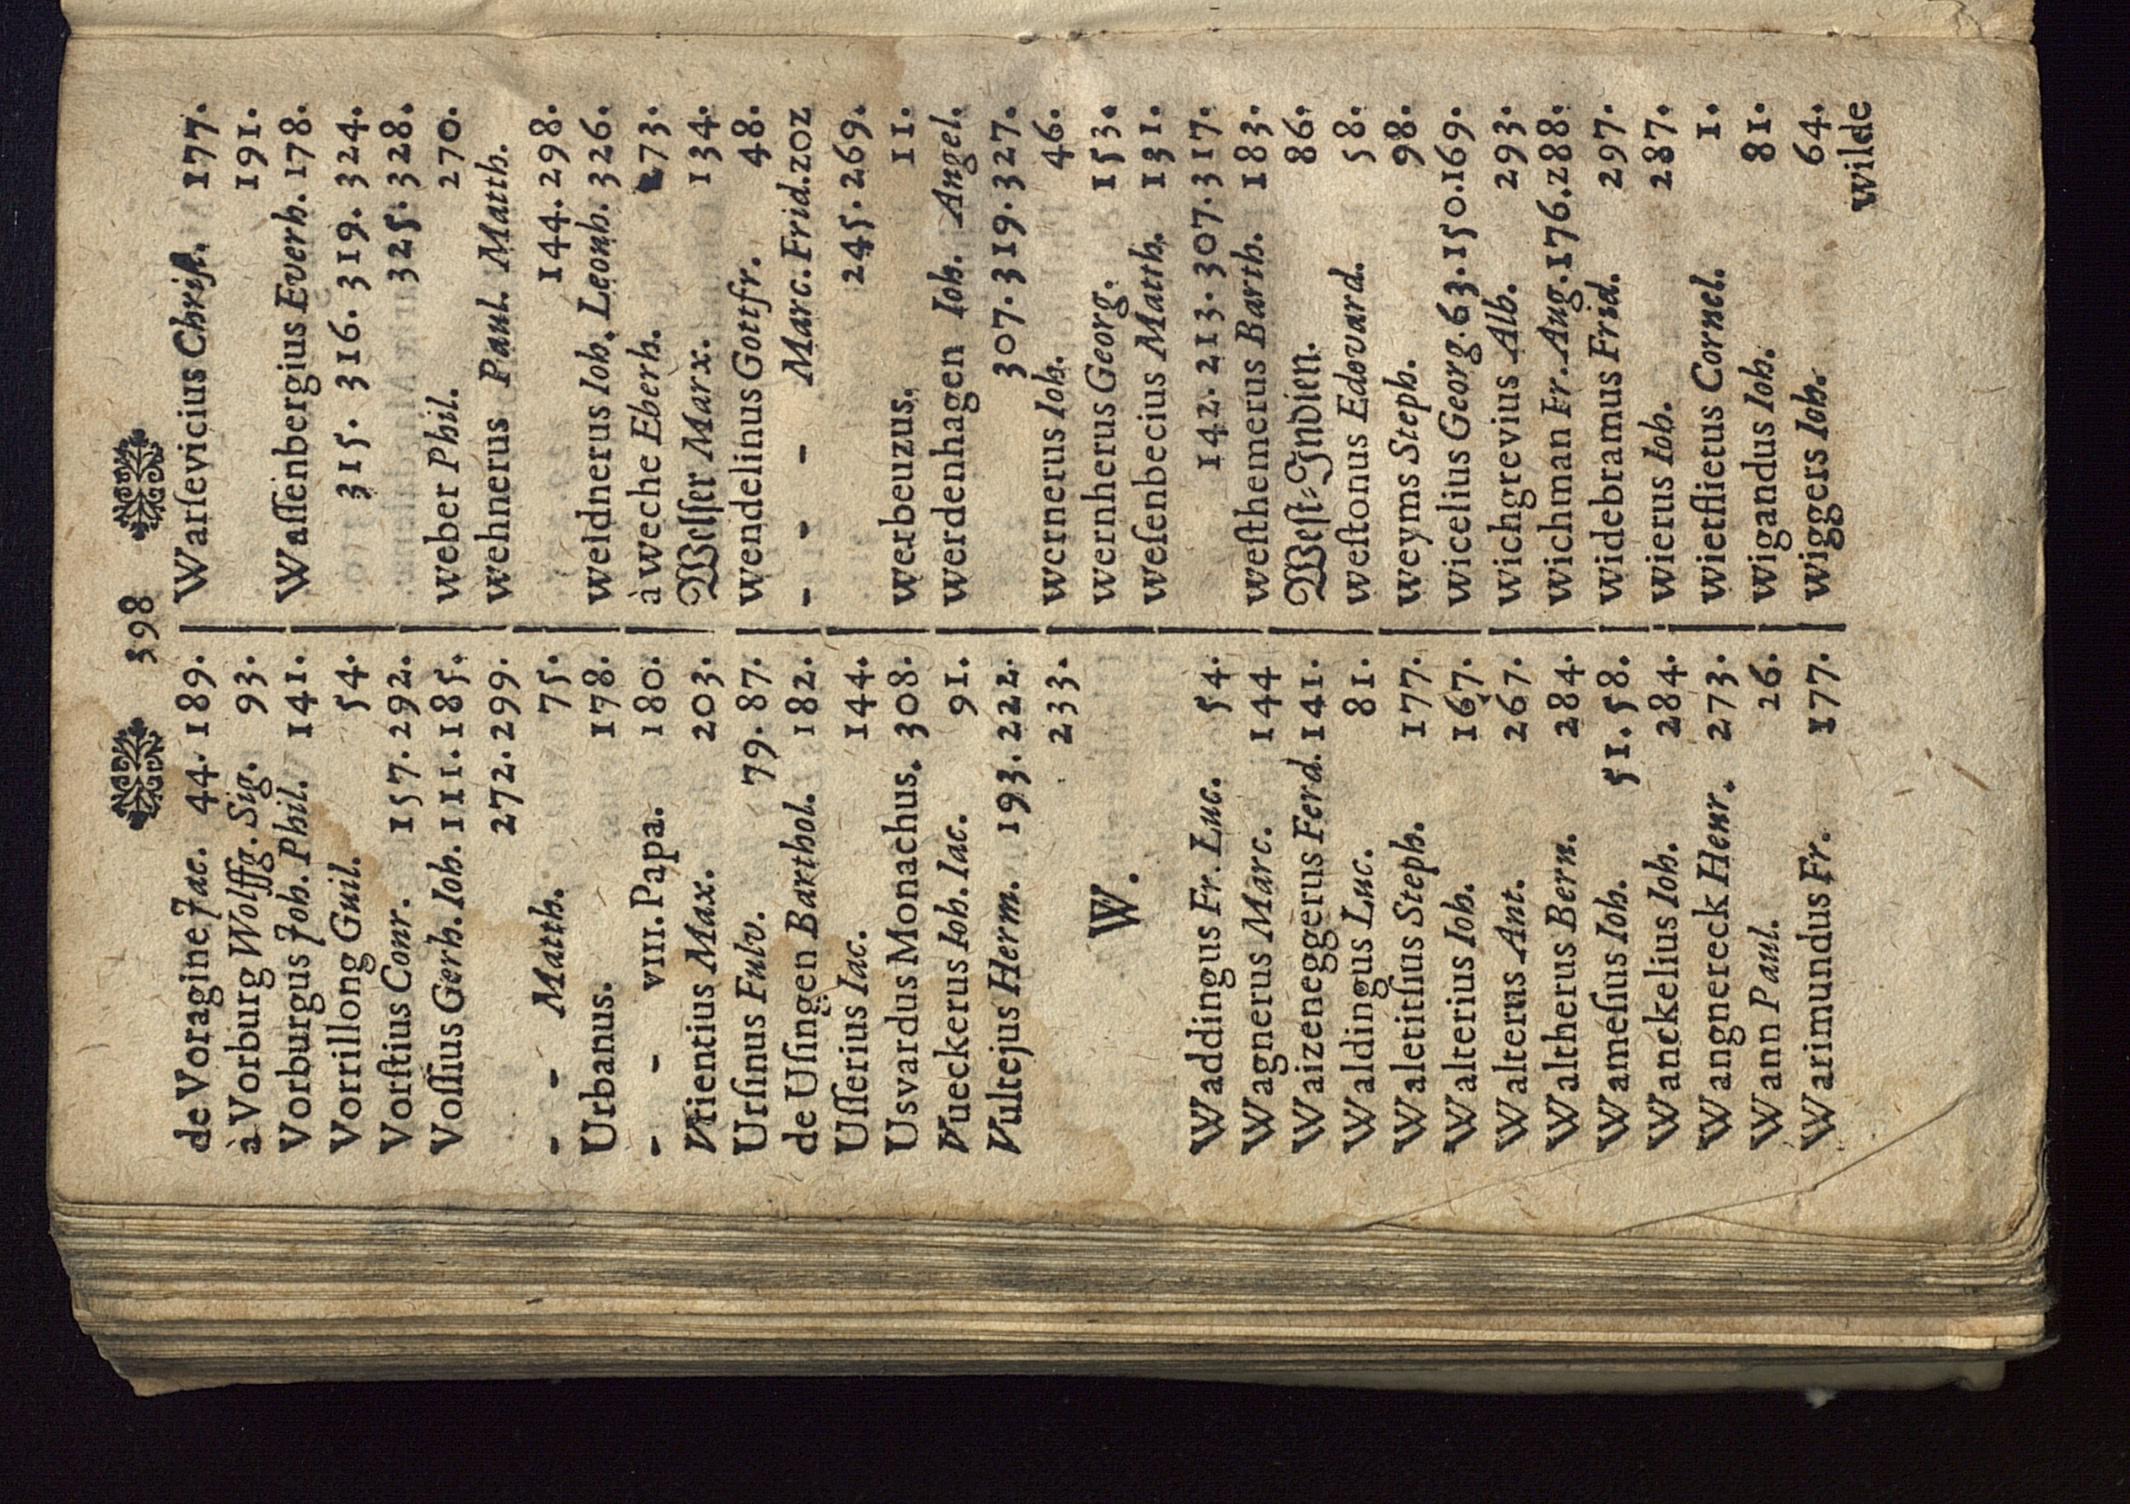 398
de Voragine Jac. 44. 189.
à Vorburg Wolffg. Sig. 93.
Vorburgus Joh. Phil. 141.
Vorrillong Guil. 54.
Vorſtius Conr. 157. 292.
Voſſius Gerh. Ioh. 111. 185.
272. 299.
- - Matth. 75.
Urbanus. 178.
- - VIII. Papa. 180.
Vrientius Max. 203.
Urſinus Fulv. 79. 87.
de Uſingen Barthol. 182.
Uſſerius Iac. 144.
Usvardus Monachus. 308.
Vueckerus Ioh. Iac. 91.
Vultejus Herm. 193. 222.
233.
W.
Waddingus Fr. Luc. 54.
Wagnerus Marc. 144
Waizeneggerus Ferd. 141.
Waldingus Luc. 81.
Waletitſius Steph. 177.
Walterius Ioh. 167.
Walterus Ant. 267.
Waltherus Bern. 284.
Wameſius Ioh. 51. 58.
Wanckelius Ioh. 284.
Wangnereck Henr. 273.
Wann Paul. 26.
Warimundus Fr. 177.
Warſevicius Chriſt. 177.
191.
Waſſenbergius Everh. 178.
315. 316. 319. 324.
325. 328.
weber Phil. 270.
wehnerus Paul. Matth.
144. 298.
weidnerus Ioh. Leonh. 326.
à weche Eberh. 273.
Welſer Marx. 134.
wendelinus Gottfr. 48.
- - - Marc. Frid. 202
245. 269.
werbeuzus. 11.
werdenhagen Ioh. Angel.
307. 319. 327.
wernerus Ioh. 46.
wernherus Georg. 153.
weſenbecius Matth. 131.
142. 213. 307. 317.
weſthemerus Barth. 183.
Weſt-Indien. 86.
weſtonus Edovard. 58.
weyms Steph. 98.
wicelius Georg. 63. 150. 169.
wichgrevius Alb. 293.
wichman Fr. Aug. 176. 288.
widebramus Frid. 297.
wierus Ioh. 287.
wietflietus Cornel. 1.
wigandus Ioh. 81.
wiggers Ioh. 64.
wilde